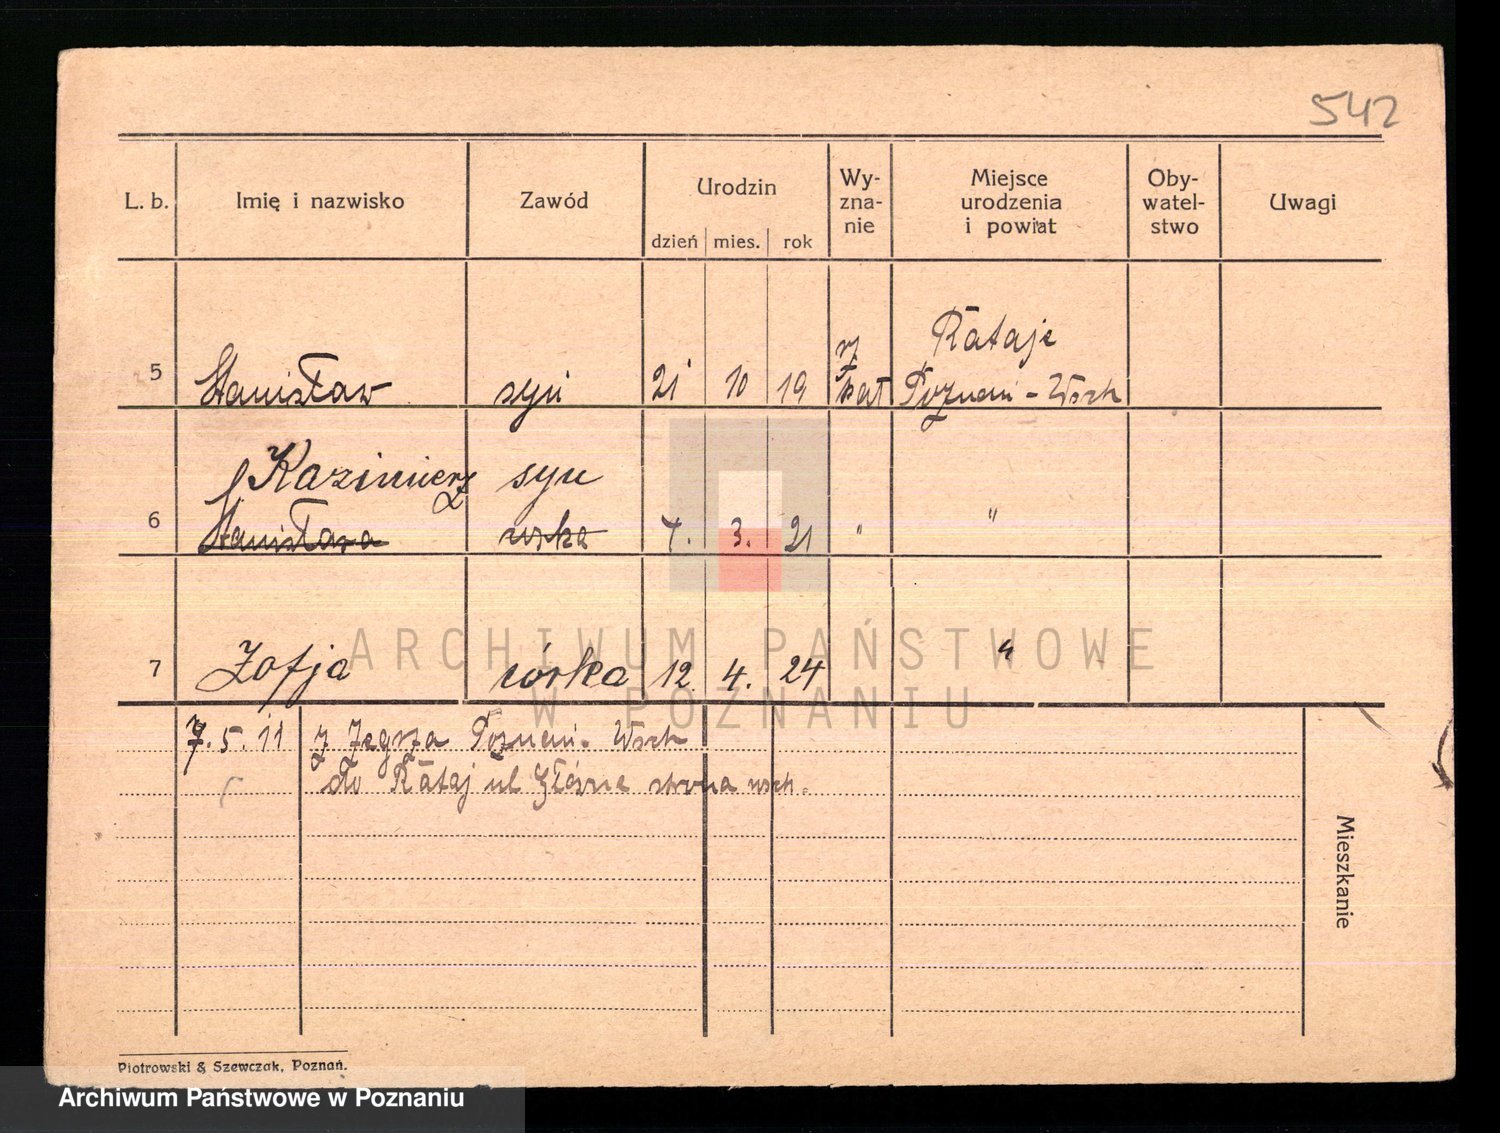 542
L. b.
Imię i nazwisko
Zawód
Urodzin
dzień mies. rok
Wy-
zna-
nie
Miejsce
urodzenia
i powiat
Oby-
watel-
stwo
Uwagi
Rataje
5 Stanisław syn 21 10 19 rz kat Poznań - Wsch
Kazimierz syn
6 Stanisława córka 7. 3. 21 " "
7 Zofja córka 12. 4. 24 "
7. 5. 11 z Zegrza Poznań. Wsch
do Rataj ul Główna strona wsch.
Mieszkanie
ARCHIWUM PAŃSTWOWE
W POZNANIU
Piotrowski & Szewczak, Poznań.
Archiwum Państwowe w Poznaniu